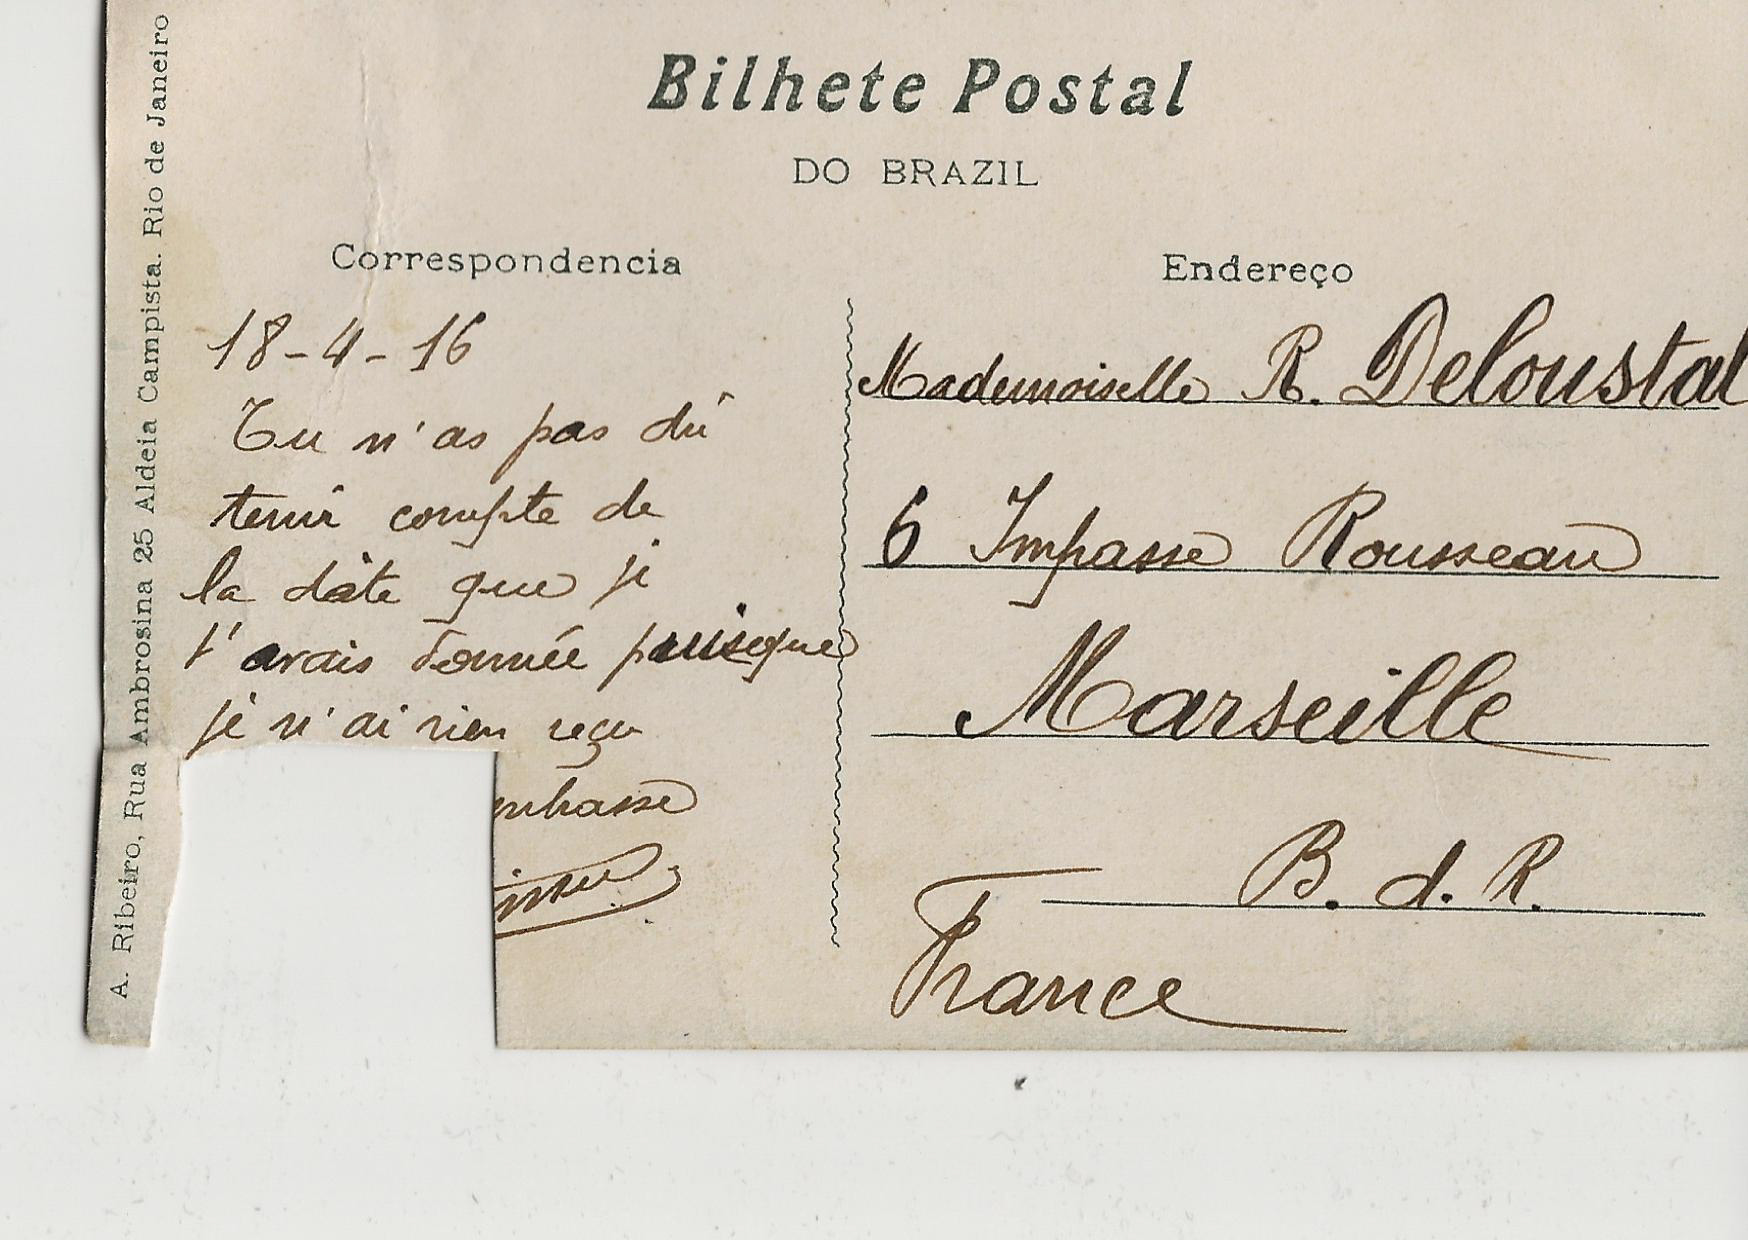 Bilhete Postal
DO BRAZIL
Correspondencia
18-4-16
Tu n'as pas dû
tenir compte de
la dâte que je
t'avais donnée puisque
je n'ai rien reçu
mbasse
Endereço
Mademoiselle R. Deloustal
6 Impasse Rousseau
Marseille
B. d. R.
France
A. Ribeiro, Rua Ambrosina 25 Aldeia Campista. Rio de Janeiro